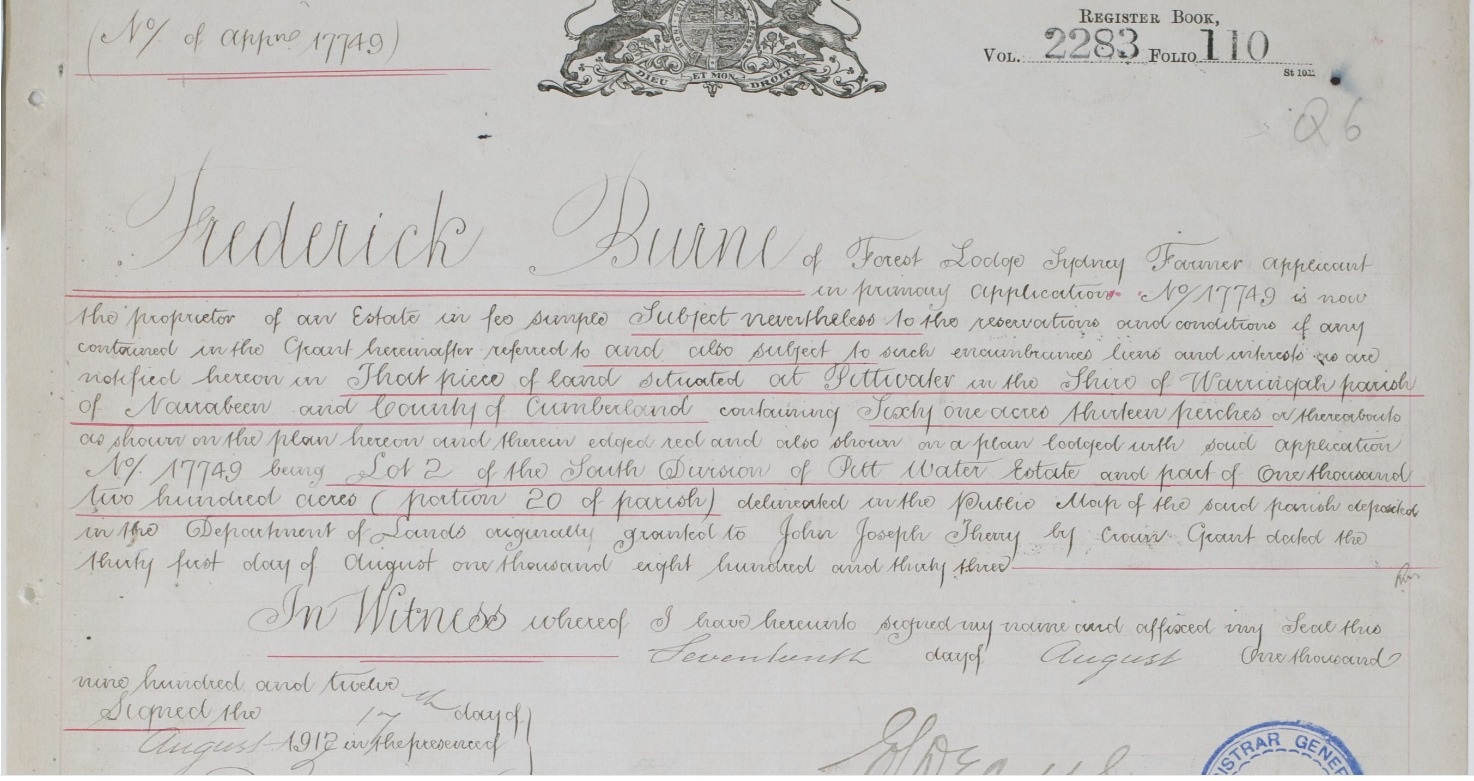 (No/ of appne 17749)
REGISTER BOOK,
VOL. 2283 FOLIO 110
St 1011
Q6
DIEU ET MON DROIT
Frederick Burne of Forest Lodge Sydney Farmer applicant
in primary application No/ 17749 is now
the proprietor of an Estate in fee simple Subject nevertheless to the reservations and conditions if any
contained in the Grant hereinafter referred to and also subject to such encumbrances liens and interests as are
notified hereon in That piece of land situated at Pittwater in the Shire of Warringah parish
of Narrabeen and County of Cumberland containing Sixty one acres thirteen perches or thereabouts
as shown on the plan hereon and therein edged red and also shown on a plan lodged with said application
No/. 17749 being Lot 2 of the South Division of Pitt Water Estate and part of One thousand
two hundred acres (portion 20 of parish) delineated in the Public Map of the said parish deposited
in the Department of Lands originally granted to John Joseph Therry by Crown Grant dated the
thirty first day of August one thousand eight hundred and thirty three
In Witness whereof I have hereunto signed my name and affixed my Seal this
Seventeenth day of August One thousand
nine hundred and twelve
Signed the 17th day of
August 1912 in the presence of
STRAR GENER